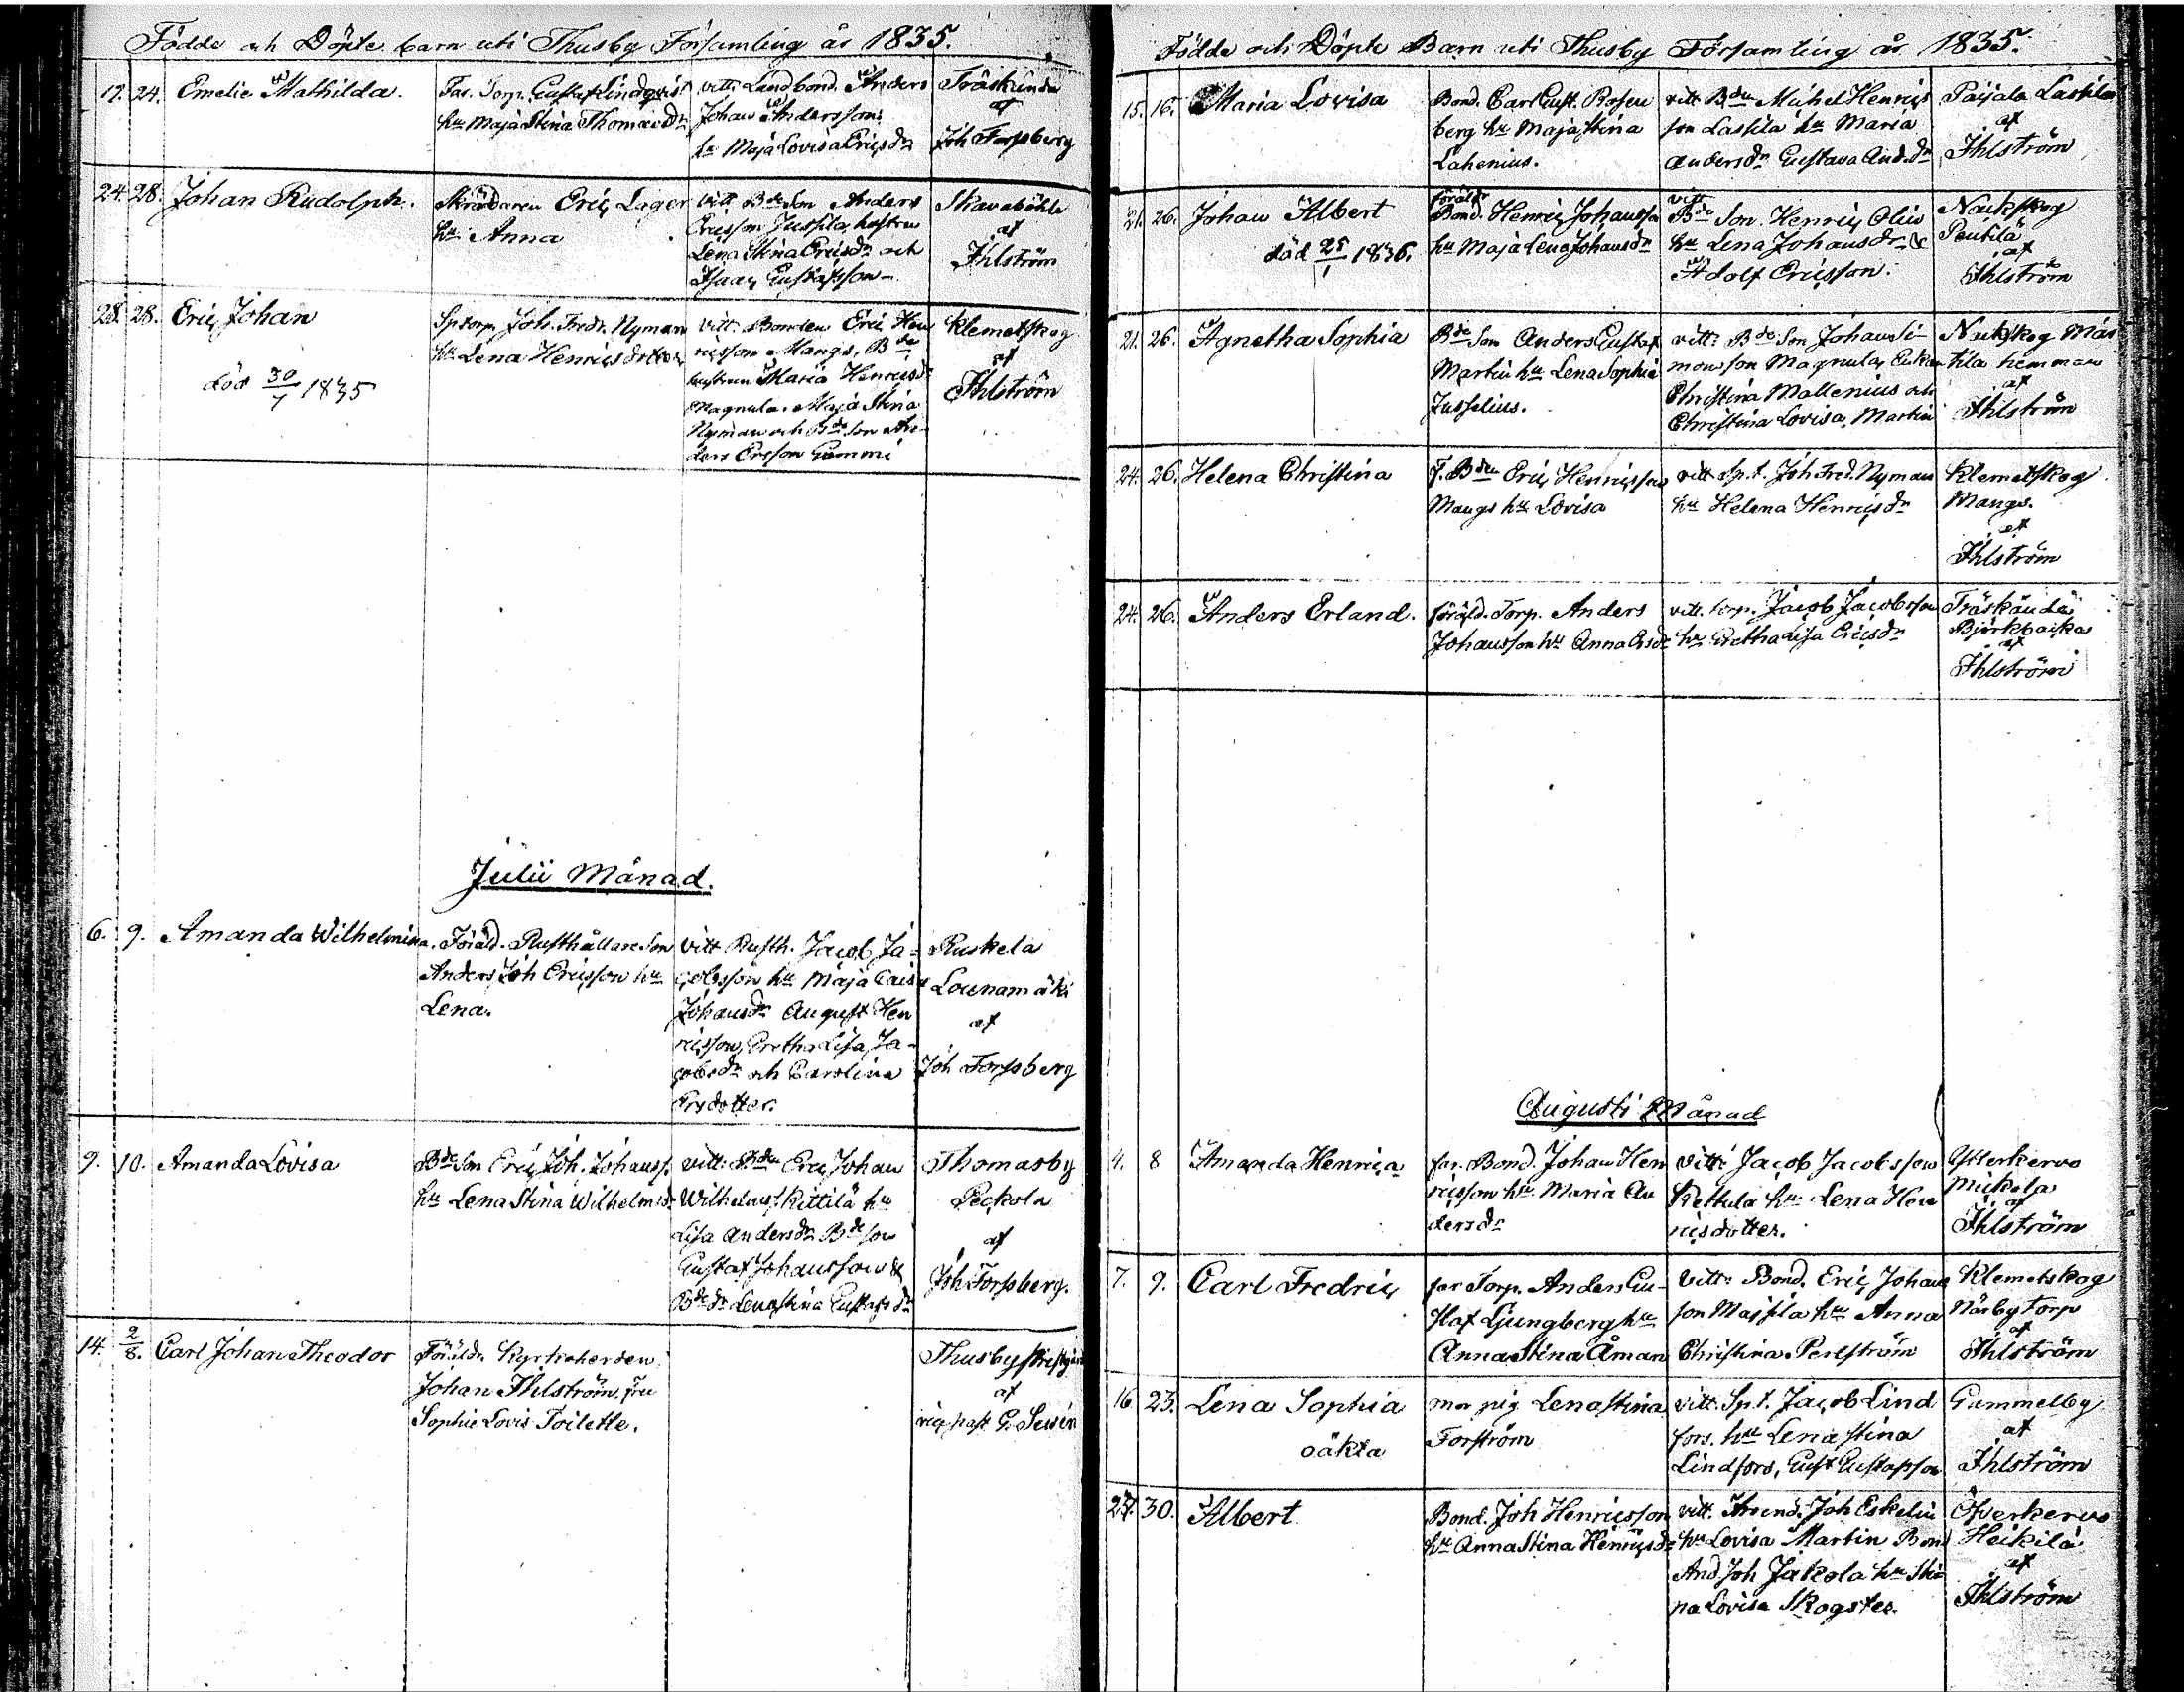 Födde och Döpte barn uti Thusby Församling år 1835.
17. 24. Emelie Mathilda.
Far. Torp. Gustaf Lindqvist
hu Maja Stina Thomaedr
vitt. Landbond. Anders
Johan Andersson
hu Maja Lovisa Ericsdr
Träskända
af
Joh Forssberg
24. 28. Johan Rudolph.
Skräddaren Eric Lager
hu Anna
vitt Bde Son Anders
Ericsson Jussila, hustru
Lena Stina Ericsdr och
Isaac Gustafsson
Skavaböhle
af
Ihlström
28. 28. Eric Johan
död 30/7 1835
Sptorp. Joh. Fredr. Nyman
hu Lena Henricsdotter
vitt. Bonden Eric Hen
ricsson Mangs, Bde
hustrun Maria Henricsdr
Magnula. Maja Stina
Nyman och Bde Son An
ders Ersson Gammi
Klemetskog
af
Ihlström
Julii Månad.
6. 9. Amanda Wilhelmina.
Föräld. Rusthållare Son
Anders Joh Ericsson hu
Lena.
vitt Rusth. Jacob Ja-
cobsson hu Maja Caisa
Johansdr August Hen
ricsson, Gretha Lisa Ja-
cobsdr och Carolina
Ersdotter.
Ruskela
Lounamäki
af
Joh Forssberg
9. 10. Amanda Lovisa
Bde Son Eric Joh. Johanss.
hu Lena Stina Wilhelmsdr
vitt. Bden Eric Johan
Wilhelmss. Kittilä hu
Lisa Andersdr Bde son
Gustaf Johansson &
Bde dr Lena Stina Gustafsdr
Thomasby
Peckola
af
Joh Forssberg.
14. 2/8. Carl Johan Theodor
Föräldr. Kyrkoherden
Johan Ihlström, fru
Sophie Lovis Toilette.
Thusby Prestgård
af
vice past G. Sevén
Födde och Döpte Barn uti Thusby Församling år 1835.
15. 16. Maria Lovisa
Bond. Carl Gust. Rosen
berg hu Maja Stina
Lahenius.
vitt Bden Michel Henrics
son Lassila hu Maria
Andersdr Gustava And.dr
Paijala Lassila
af
Ihlström
21. 26. Johan Albert
död 25/1 1836.
Föräldr
Bond. Henric Johansson
hu Maja Lena Johansdr
vitt
Bde Son. Henric Olin
hu Lena Johansdr &
Adolf Ericsson.
Nackskog
Pentilä
af
Ihlström
21. 26. Agnetha Sophia
Bde Son Anders Gustaf
Martin hu Lena Sophia
Jusselius.
vitt: Bde Son Johan Si-
monsson Magnula, Enkan
Christina Mallenius och
Christina Lovisa Martin
Nackskog Mar
tila hemman
af
Ihlström
24. 26. Helena Christina
F. Bden Eric Henricsson
Mangs hu Lovisa
vitt Sp.t. Joh Fred. Nyman
hu Helena Henricsdr
Klemetskog
Mangs.
af
Ihlström
24. 26. Anders Erland.
föräld. Torp. Anders
Johansson hu Anna Ersdr
vitt. torp. Jacob Jacobsson
hu Gretha Lisa Ericsdr
Träskända
Björkbacka
af
Ihlström
Augusti Månad
4. 8 Amanda Henrica
far. Bond. Johan Hen
ricsson hu Maria An
dersdr
vitt. Jacob Jacobsson
Kettula hu Lena Hen
ricsdotter.
Ytterkervo
Mickela
af
Ihlström
7. 9. Carl Fredric
far Torp. Anders Gu-
staf Ljungberg hu
Anna Stina Åman
vitt: Bond. Eric Johans
son Majsila hu Anna
Christina Perlström
Klemetskog
Närby torp
af
Ihlström
16 23. Lena Sophia
oäkta
mor pig. Lena Stina
Forström
vitt. Sp.t. Jacob Lind
fors. hu Lena Stina
Lindfors, Gust Gustafson
Gammelby
af
Ihlström
27. 30. Albert.
Bond. Joh Henricsson
hu Anna Stina Henricsdr
vitt. Arend. Joh Eskelin
hu Lovisa Martin Bond
And Joh Jakola hu Sti
na Lovisa Skogster.
Öfverkervo
Heikilä
af
Ihlström